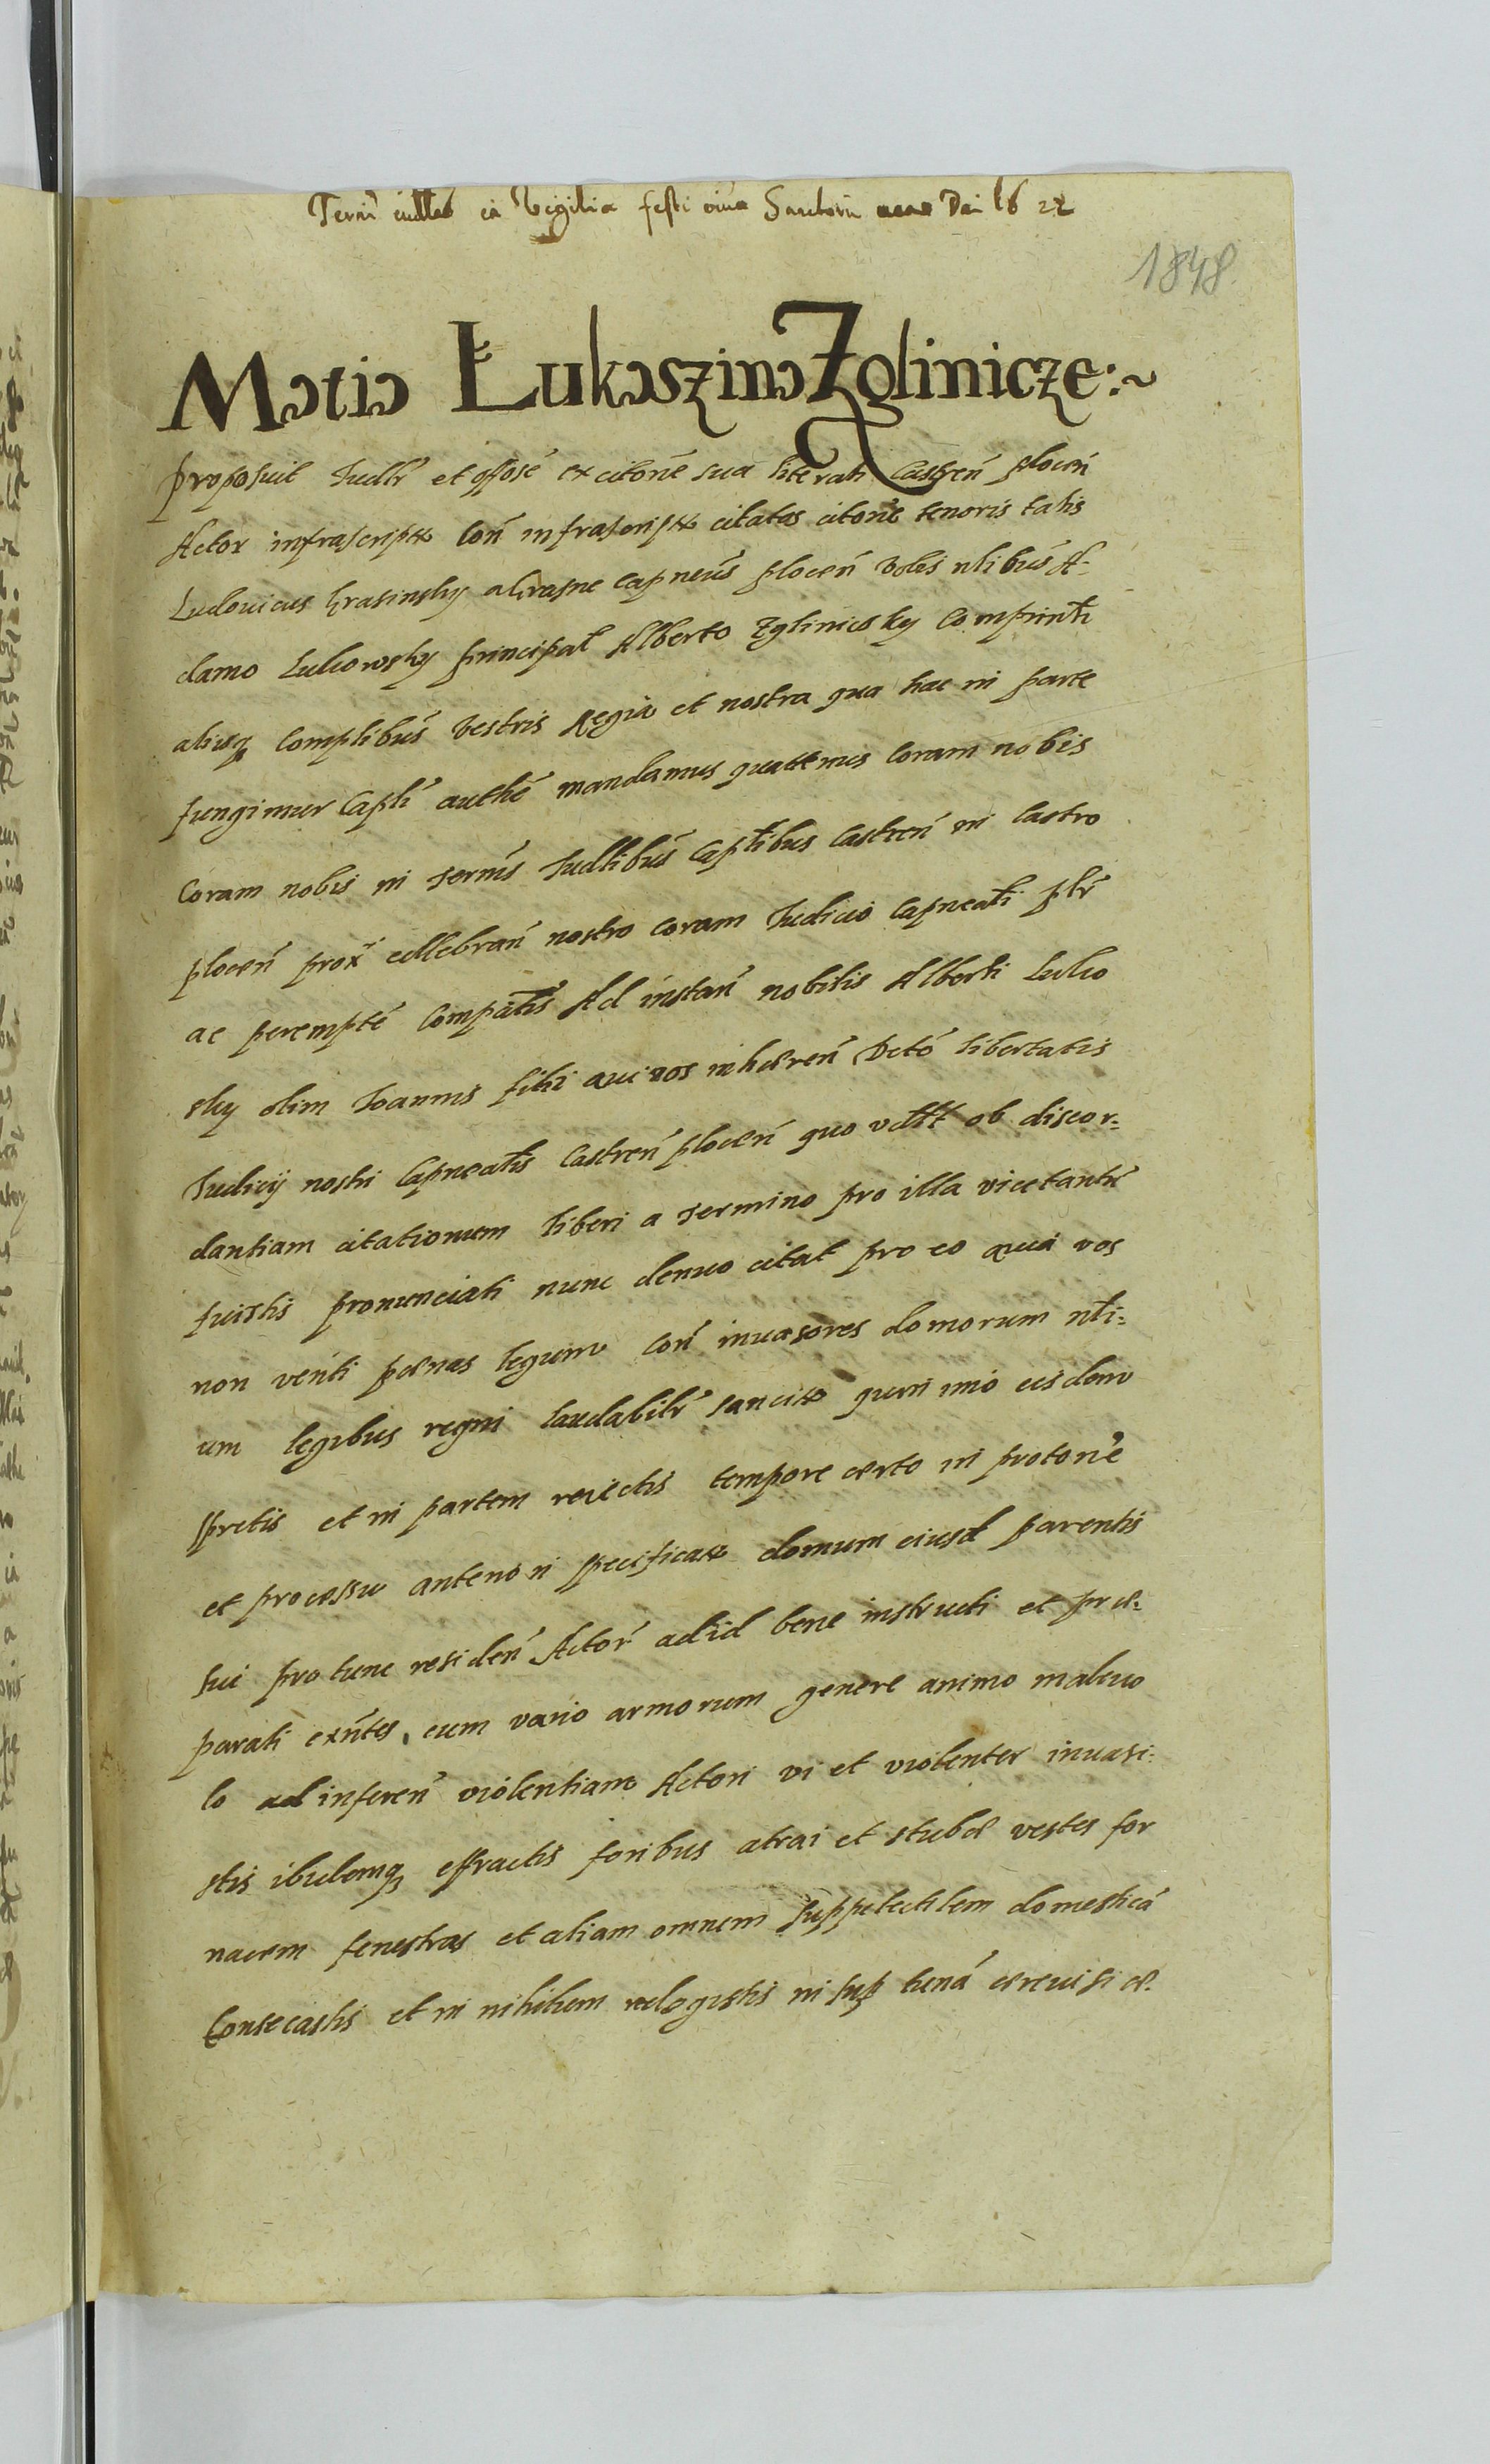 Vigilia festi Sanctorū Dni 1622
1848.
Matia Łukaszina Zglinicze:~
proposuit Judlr et offose ex citone sua literati Castren plocen
Actor infrascript Con infrascript citatos citone tenoris talis
Ludouicus krasinsky a krasne Capneus plocen vobis nlibus A-
damo Lukowsky principal Alberto Zglinicsky Comprinti
alijsq Complibus vestris Regia et nostra qua hac in parte
fungimur Capli authe mandamus quattenus Coram nobis
Coram nobis in termis Judlibus Captlibus Castren in Castro
plocen prox cellebran nostro coram Judicio Capneatli ptr
ac perempte Compatis Ad instan nobilis Alberti Luko
sky olim Joannis filii qui vos inhæren Dcto libertatis
Judicij nostri Capneatlis Castren plocen quo ob discor=
dantiam citationum liberi a termino pro illa vice tantr
fuistis pronunciati nunc denuo citat pro eo quia vos
non venti pænas legum Con inuasores domorum nli=
um legibus regni laudabilr sancit quin imo eisdem
spretis et in partem reiectis tempore certo in protone
et processu anteriori specificat domum eiusd parentis
sui pro tunc residen Actor ad id bene instructi et præ=
parati exntes, cum vario armorum genere animo maleuo
lo ad inferen violentiam Actori vi et violenter inuasi=
stis ibidemq effractis foribus atrai et stubæ vestes for
nacem fenestras et aliam omnem suppelectilem domesticā
Consecastis et in nihilum redegistis in sup tunā cereuisiæ